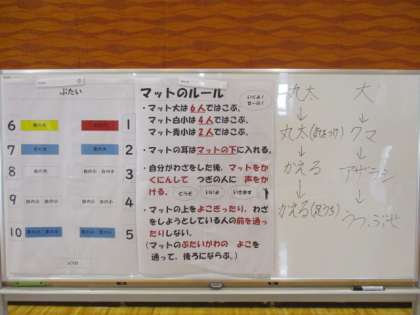 ぶたい
6
1
7
2
8
3
9
4
10
5
マットのルール
・マット大は6人ではこぶ。
・マット白小は4人ではこぶ。
・マット青小は2人ではこぶ。
・マットの耳はマットの下に入れる。
・自分がわざをした後、マットをか
くにんして つぎの人に 声をか
ける。
どうぞ
いいよ
いきます
・マットの上をよこぎったり、わざ
をしようとしている人の前を通っ
たりしない。
(マットのぶたいがわの よこを
通って、後ろにならぶ。)
丸太
↓
丸太
↓
かえる
↓
かえる(足うち)
大
↓
クマ
↓
アザラシ
↓
うつぶせ